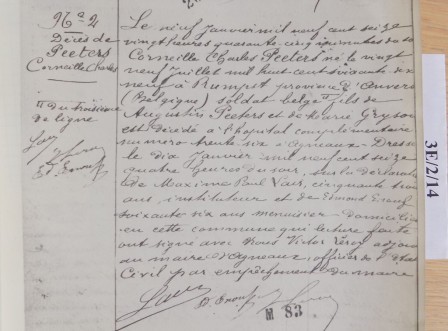 No 2
Décès de
Peeters
Corneille Charles
du troisième
de ligne
Le neuf janvier mil neuf cent seize
vingt heures quarante cinq
Corneille Charles Peeters né le vingt
neuf juillet mil huit cent soixante dix
neuf à Rumpst province d'Anvers
(Belgique) soldat belge fils de
Augustin Peeters et de Marie Gryson
est décédé à l'hôpital complémentaire
numéro trente six à Agneaux. Dressé
le dix janvier mil neuf cent seize
quatre heures du soir, sur la déclaration
de Maxime Paul cinquante trois
ans, instituteur et de Edmond
soixante six ans menuisier domiciliés
en cette commune qui lecture faite
ont signé avec Nous Victor Leroy adjoint
au maire d'Agneaux, officier de l'Etat
Civil par empêchement du maire
M 83
3E/2/14